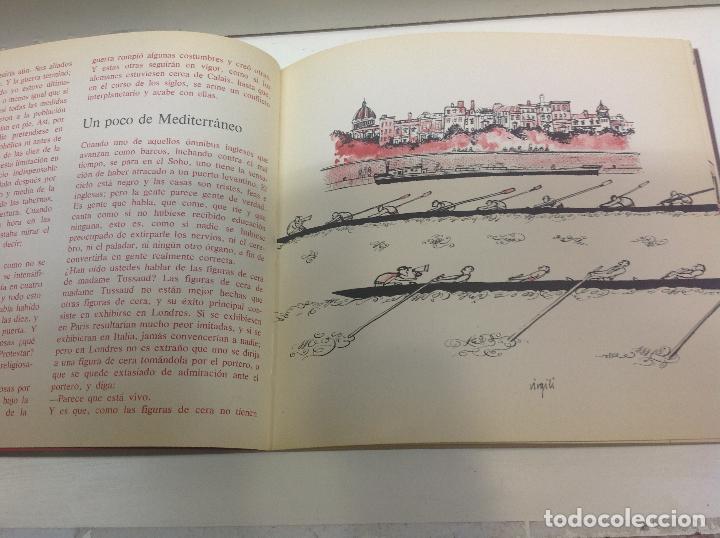 esiris aún. Sus aliados
. Y la guerra terminó;
do yo estuve última-
o menos igual que si
todas las medidas
ron a la población
an en pie. Así, por
pretendiese en
ohólica ni antes de
de las diez de la
sta limitación en
o indispensable
dado después por
o y media de la
las tabernas,
ertura. Cuando
hora en las
staba mirar el
decir:
como no se
se intensifi-
n en cuatro
y todo esto
abía habido
las diez, y
puerta. Y
osas ¿qué
Protestar?
religiosa-
osas por
bajo la
de la
guerra rompió algunas costumbres y creó otras.
Y estas otras seguirán en vigor, como si los
alemanes estuviesen cerca de Calais, hasta que
en el curso de los siglos, se arme un conflicto
interplanetario y acabe con ellas.
Un poco de Mediterráneo
Cuando uno de aquellos ómnibus ingleses que
avanzan como barcos, luchando contra el mal
tiempo, se para en el Soho, uno tiene la sensa-
ción de haber atracado a un puerto levantino. El
cielo está negro y las casas son tristes, feas e
inglesas; pero la gente parece gente de verdad.
Es gente que habla, que come, que ríe y que
canta como si no hubiese recibido educación
ninguna, esto es, como si nadie se hubiese
preocupado de extirparle los nervios, ni el cere-
bro, ni el paladar, ni ningún otro órgano, a fin de
convertirla en gente realmente correcta.
¿Han oído ustedes hablar de las figuras de cera
de madame Tussaud? Las figuras de cera de
madame Tussaud no están mejor hechas que
otras figuras de cera, y su éxito principal con-
siste en exhibirse en Londres. Si se exhibiesen
en París resultarían mucho peor imitadas, y si se
exhibieran en Italia, jamás convencerían a nadie;
pero en Londres no es extraño que uno se dirija
a una figura de cera tomándola por el portero, o
que se quede extasiado de admiración ante el
portero, y diga:
—Parece que está vivo.
Y es que, como las figuras de cera no tienen
virgili
todocoleccion
todocoleccion.net